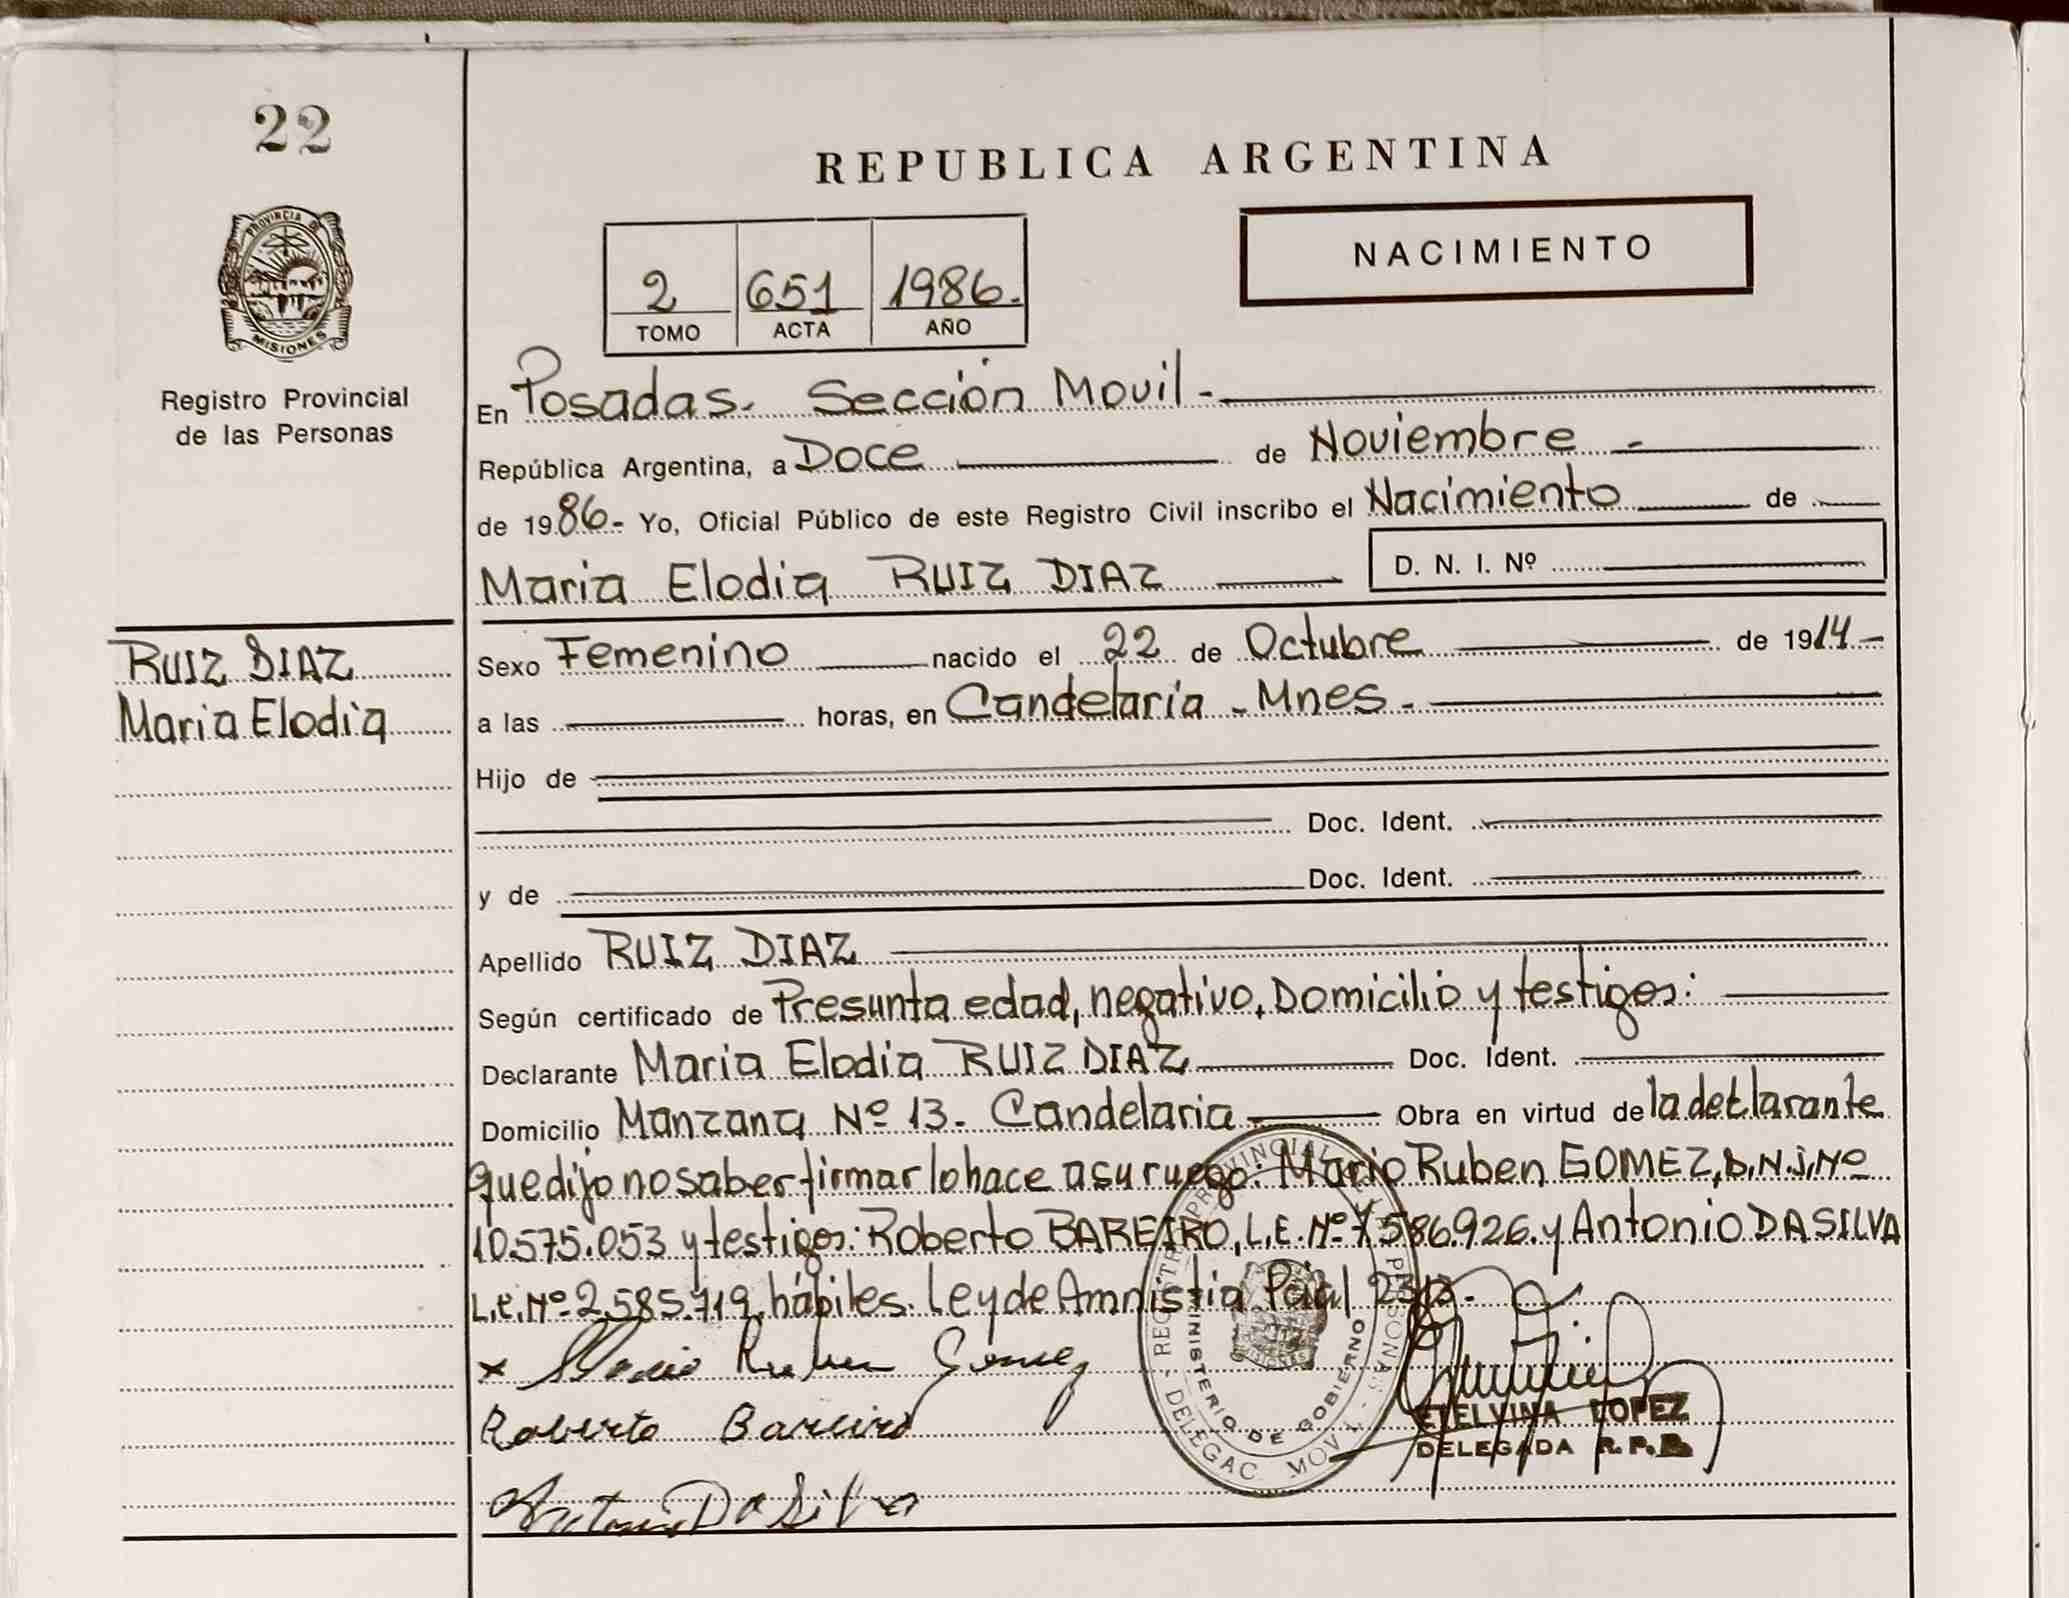 22
PROVINCIA DE
MISIONES
Registro Provincial
de las Personas
RUIZ DIAZ
Maria Elodia
REPUBLICA ARGENTINA
2 651 1986.
TOMO ACTA AÑO
NACIMIENTO
En Posadas. Sección Movil -
República Argentina, a Doce de Noviembre -
de 1986.- Yo, Oficial Público de este Registro Civil inscribo el Nacimiento de
Maria Elodia RUIZ DIAZ D. N. I. Nº
Sexo Femenino nacido el 22 de Octubre de 1914.-
a las horas, en Candelaria - Mnes -
Hijo de
Doc. Ident.
y de Doc. Ident.
Apellido RUIZ DIAZ
Según certificado de Presunta edad, negativo, Domicilio y testigos:
Declarante Maria Elodia RUIZ DIAZ Doc. Ident.
Domicilio Manzana Nº 13. Candelaria Obra en virtud de la declarante
que dijo no saber firmar lo hace a su ruego: Mario Ruben GOMEZ, D.N.I. Nº
10.575.053 y testigos: Roberto BAREIRO, L.E. Nº 7.586.926. y Antonio DA SILVA
L.E. Nº 2.585.719, hábiles. Ley de Amnistia Pcial
x Mario Ruben Gomez
Roberto Bareiro
Antonio Da Silva
REGISTRO PROVINCIAL DE LAS PERSONAS
MINISTERIO DE GOBIERNO
DELEGAC. MOVIL
MISIONES
ETELVINA LOPEZ
DELEGADA R. P. P.